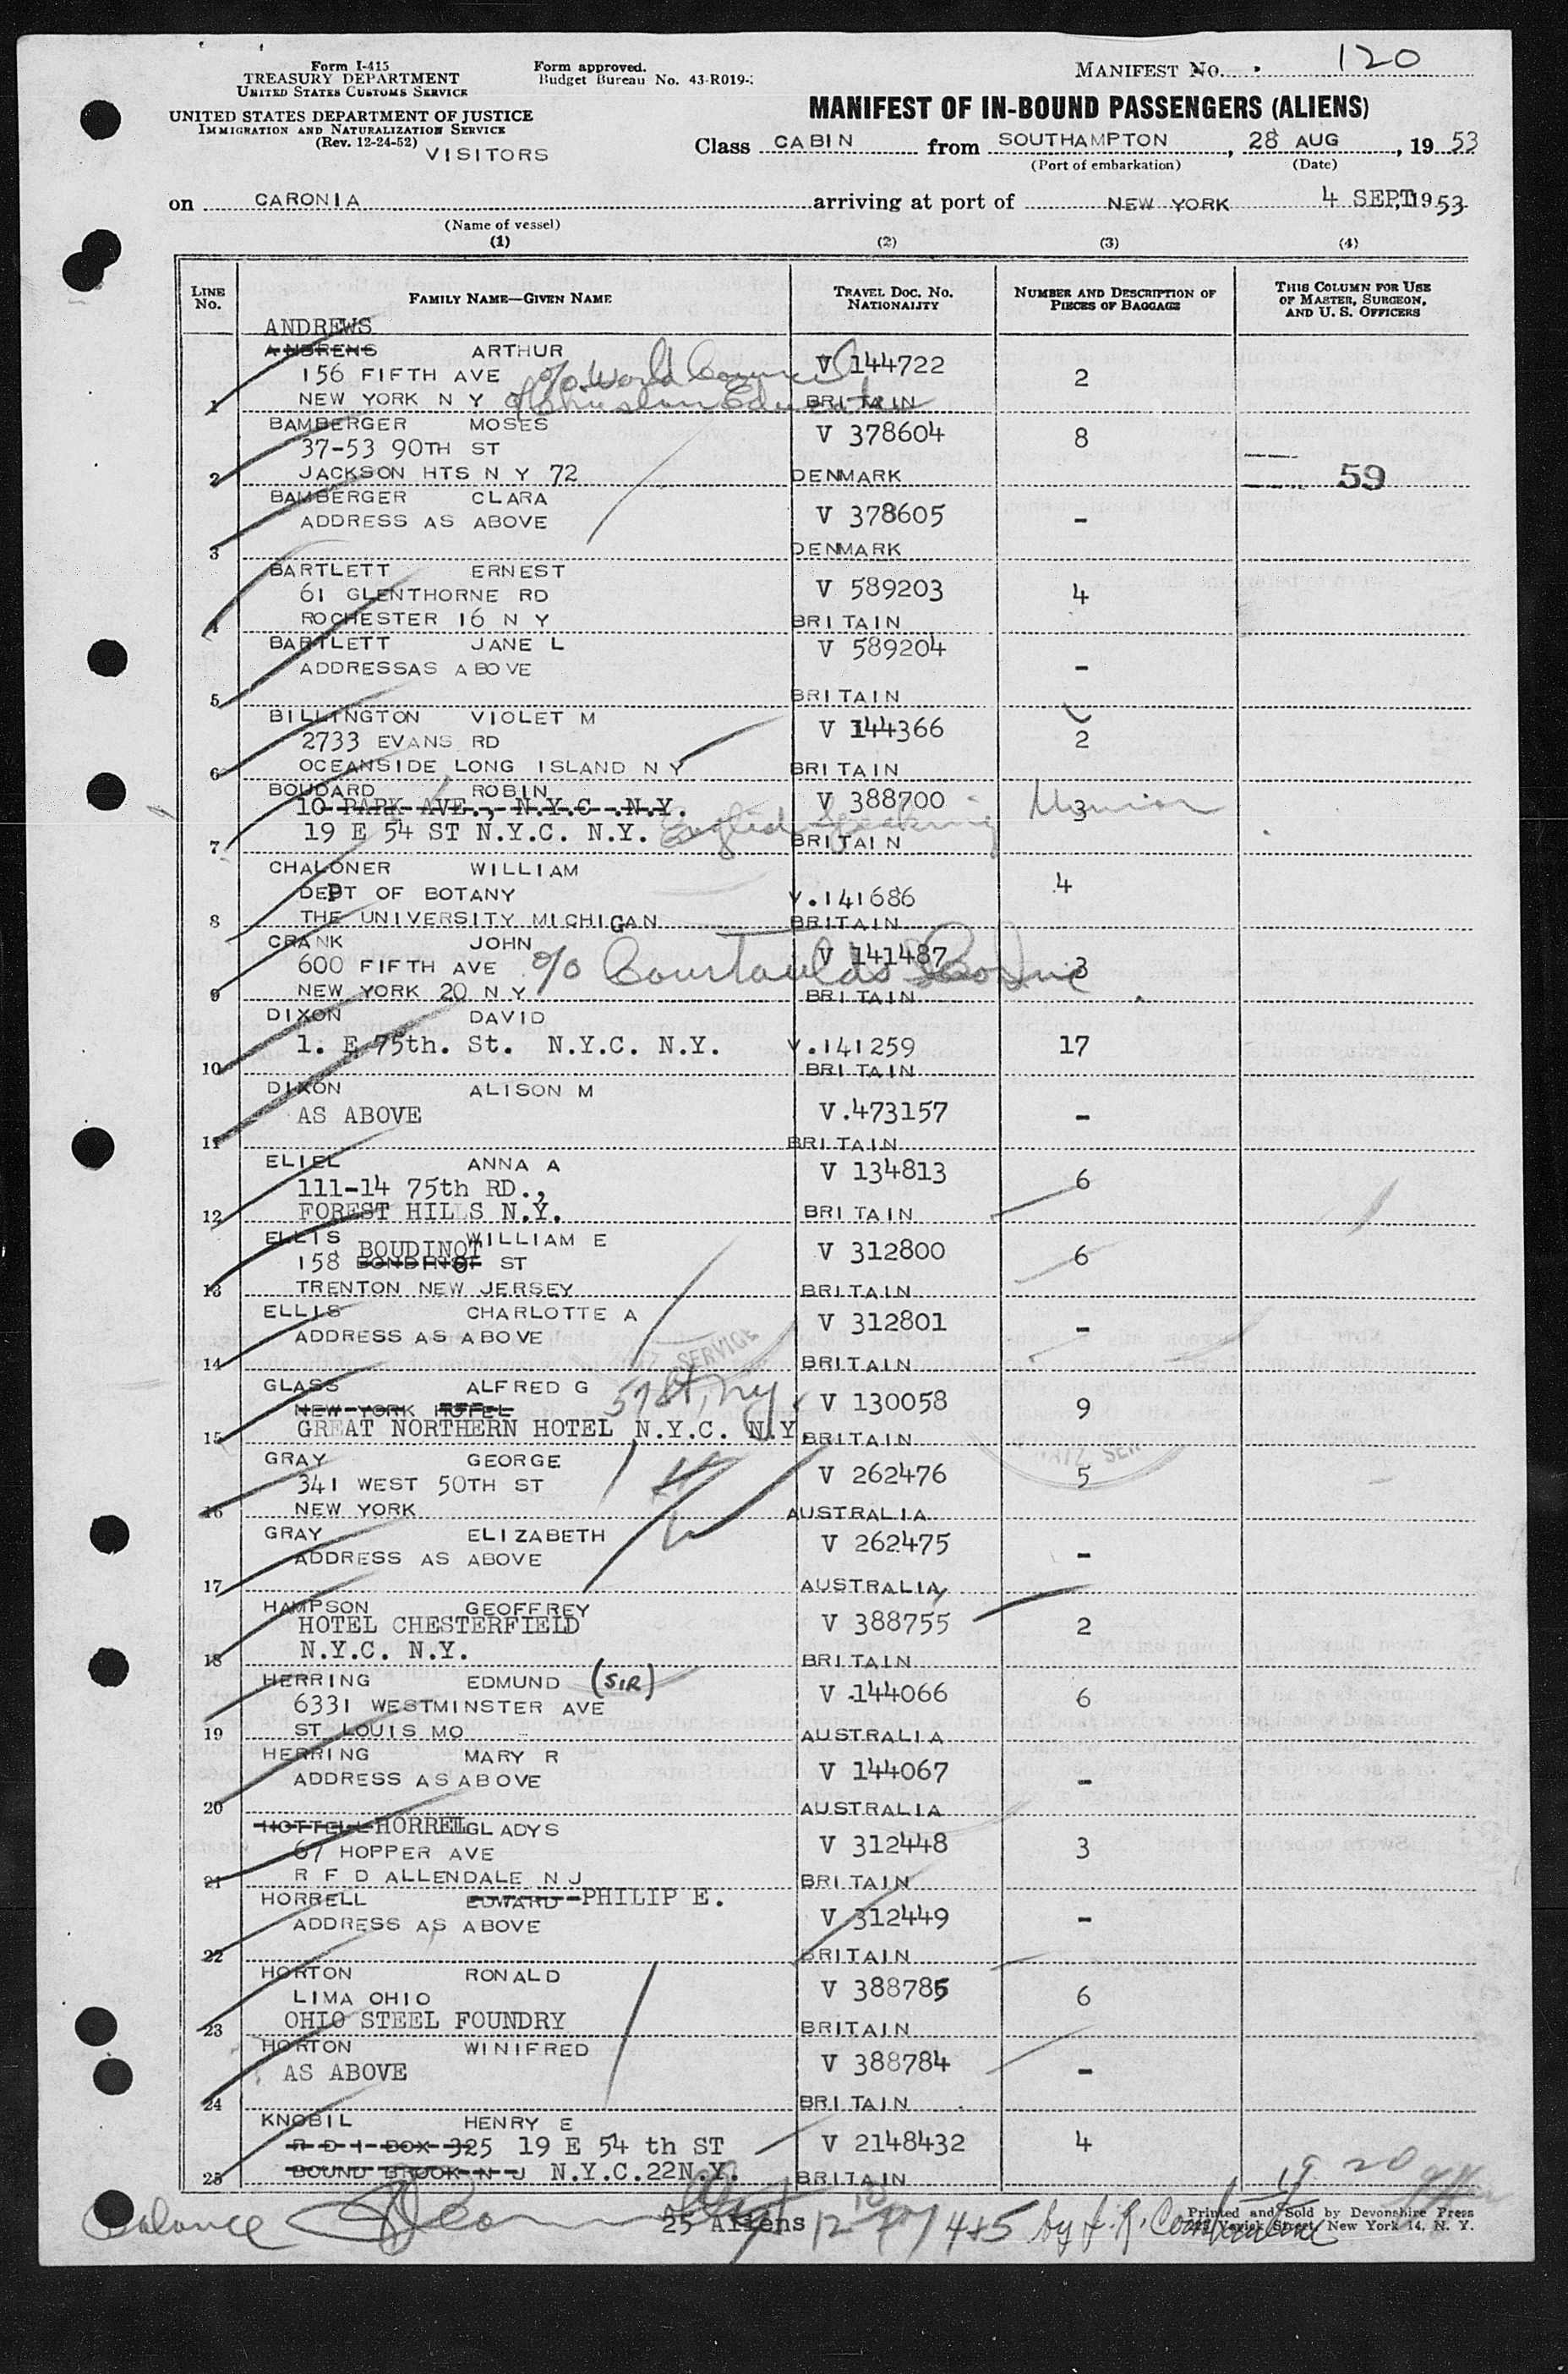 Form I-415
TREASURY DEPARTMENT
UNITED STATES CUSTOMS SERVICE
UNITED STATES DEPARTMENT OF JUSTICE
IMMIGRATION AND NATURALIZATION SERVICE
(Rev. 12-24-52)
VISITORS
Form approved.
Budget Bureau No. 43-R019-
MANIFEST No. 120
MANIFEST OF IN-BOUND PASSENGERS (ALIENS)
Class CABIN from SOUTHAMPTON, 28 AUG, 1953
(Port of embarkation) (Date)
on CARONIA arriving at port of NEW YORK 4 SEPT, 1953
(Name of vessel)
(1) (2) (3) (4)
LINE No. FAMILY NAME—GIVEN NAME TRAVEL DOC. NO. NATIONALITY NUMBER AND DESCRIPTION OF PIECES OF BAGGAGE THIS COLUMN FOR USE OF MASTER, SURGEON, AND U. S. OFFICERS
ANDREWS
ANDRENS ARTHUR V 144722
156 FIFTH AVE c/o World Council 2
1 NEW YORK N Y of Christian Education BRITAIN
BAMBERGER MOSES V 378604 8
37-53 90TH ST
2 JACKSON HTS N Y 72 DENMARK 59
BAMBERGER CLARA V 378605 -
ADDRESS AS ABOVE
3 DENMARK
BARTLETT ERNEST V 589203 4
61 GLENTHORNE RD
4 ROCHESTER 16 N Y BRITAIN
BARTLETT JANE L V 589204 -
ADDRESSAS ABOVE
5 BRITAIN
BILLINGTON VIOLET M V 144366
2733 EVANS RD 2
6 OCEANSIDE LONG ISLAND N Y BRITAIN
BOUDARD ROBIN V 388700 3
10 PARK AVE., N.Y.C. N.Y.
7 19 E 54 ST N.Y.C. N.Y. English Speaking Union BRITAIN
CHALONER WILLIAM 4
DEPT OF BOTANY V.141686
8 THE UNIVERSITY MICHIGAN BRITAIN
CRANK JOHN V 141487 3
600 FIFTH AVE c/o Courtaulds
9 NEW YORK 20 N Y BRITAIN
DIXON DAVID
1. E 75th. St. N.Y.C. N.Y. V.141259 17
10 BRITAIN
DIXON ALISON M V.473157 -
AS ABOVE
11 BRITAIN
ELIEL ANNA A V 134813 6
111-14 75th RD.,
12 FOREST HILLS N.Y. BRITAIN
ELLIS WILLIAM E V 312800 6
BOUDINOT
158 BONDINOT ST
13 TRENTON NEW JERSEY BRITAIN
ELLIS CHARLOTTE A V 312801 -
ADDRESS AS ABOVE
14 BRITAIN
GLASS ALFRED G V 130058 9
NEW YORK HOTEL 57 St, NY
15 GREAT NORTHERN HOTEL N.Y.C. N.Y. BRITAIN
GRAY GEORGE V 262476 5
341 WEST 50TH ST
16 NEW YORK AUSTRALIA
GRAY ELIZABETH V 262475 -
ADDRESS AS ABOVE
17 AUSTRALIA
HAMPSON GEOFFREY V 388755 2
HOTEL CHESTERFIELD
18 N.Y.C. N.Y. BRITAIN
HERRING EDMUND (SIR) V 144066 6
6331 WESTMINSTER AVE
19 ST LOUIS MO AUSTRALIA
HERRING MARY R V 144067 -
ADDRESS AS ABOVE
20 AUSTRALIA
HOTTELL HORREL GLADYS V 312448 3
67 HOPPER AVE
21 R F D ALLENDALE N J BRITAIN
HORRELL EDWARD PHILIP E. V 312449 -
ADDRESS AS ABOVE
22 BRITAIN
HORTON RONALD V 388785 6
LIMA OHIO
23 OHIO STEEL FOUNDRY BRITAIN
HORTON WINIFRED V 388784 -
AS ABOVE
24 BRITAIN
KNOBIL HENRY E V 2148432 4
R D 1 BOX 325 19 E 54 th ST
25 BOUND BROOK N J N.Y.C.22N.Y. BRITAIN
Balance 25 Aliens
Printed and Sold by Devonshire Press
Varick Street, New York 14, N. Y.